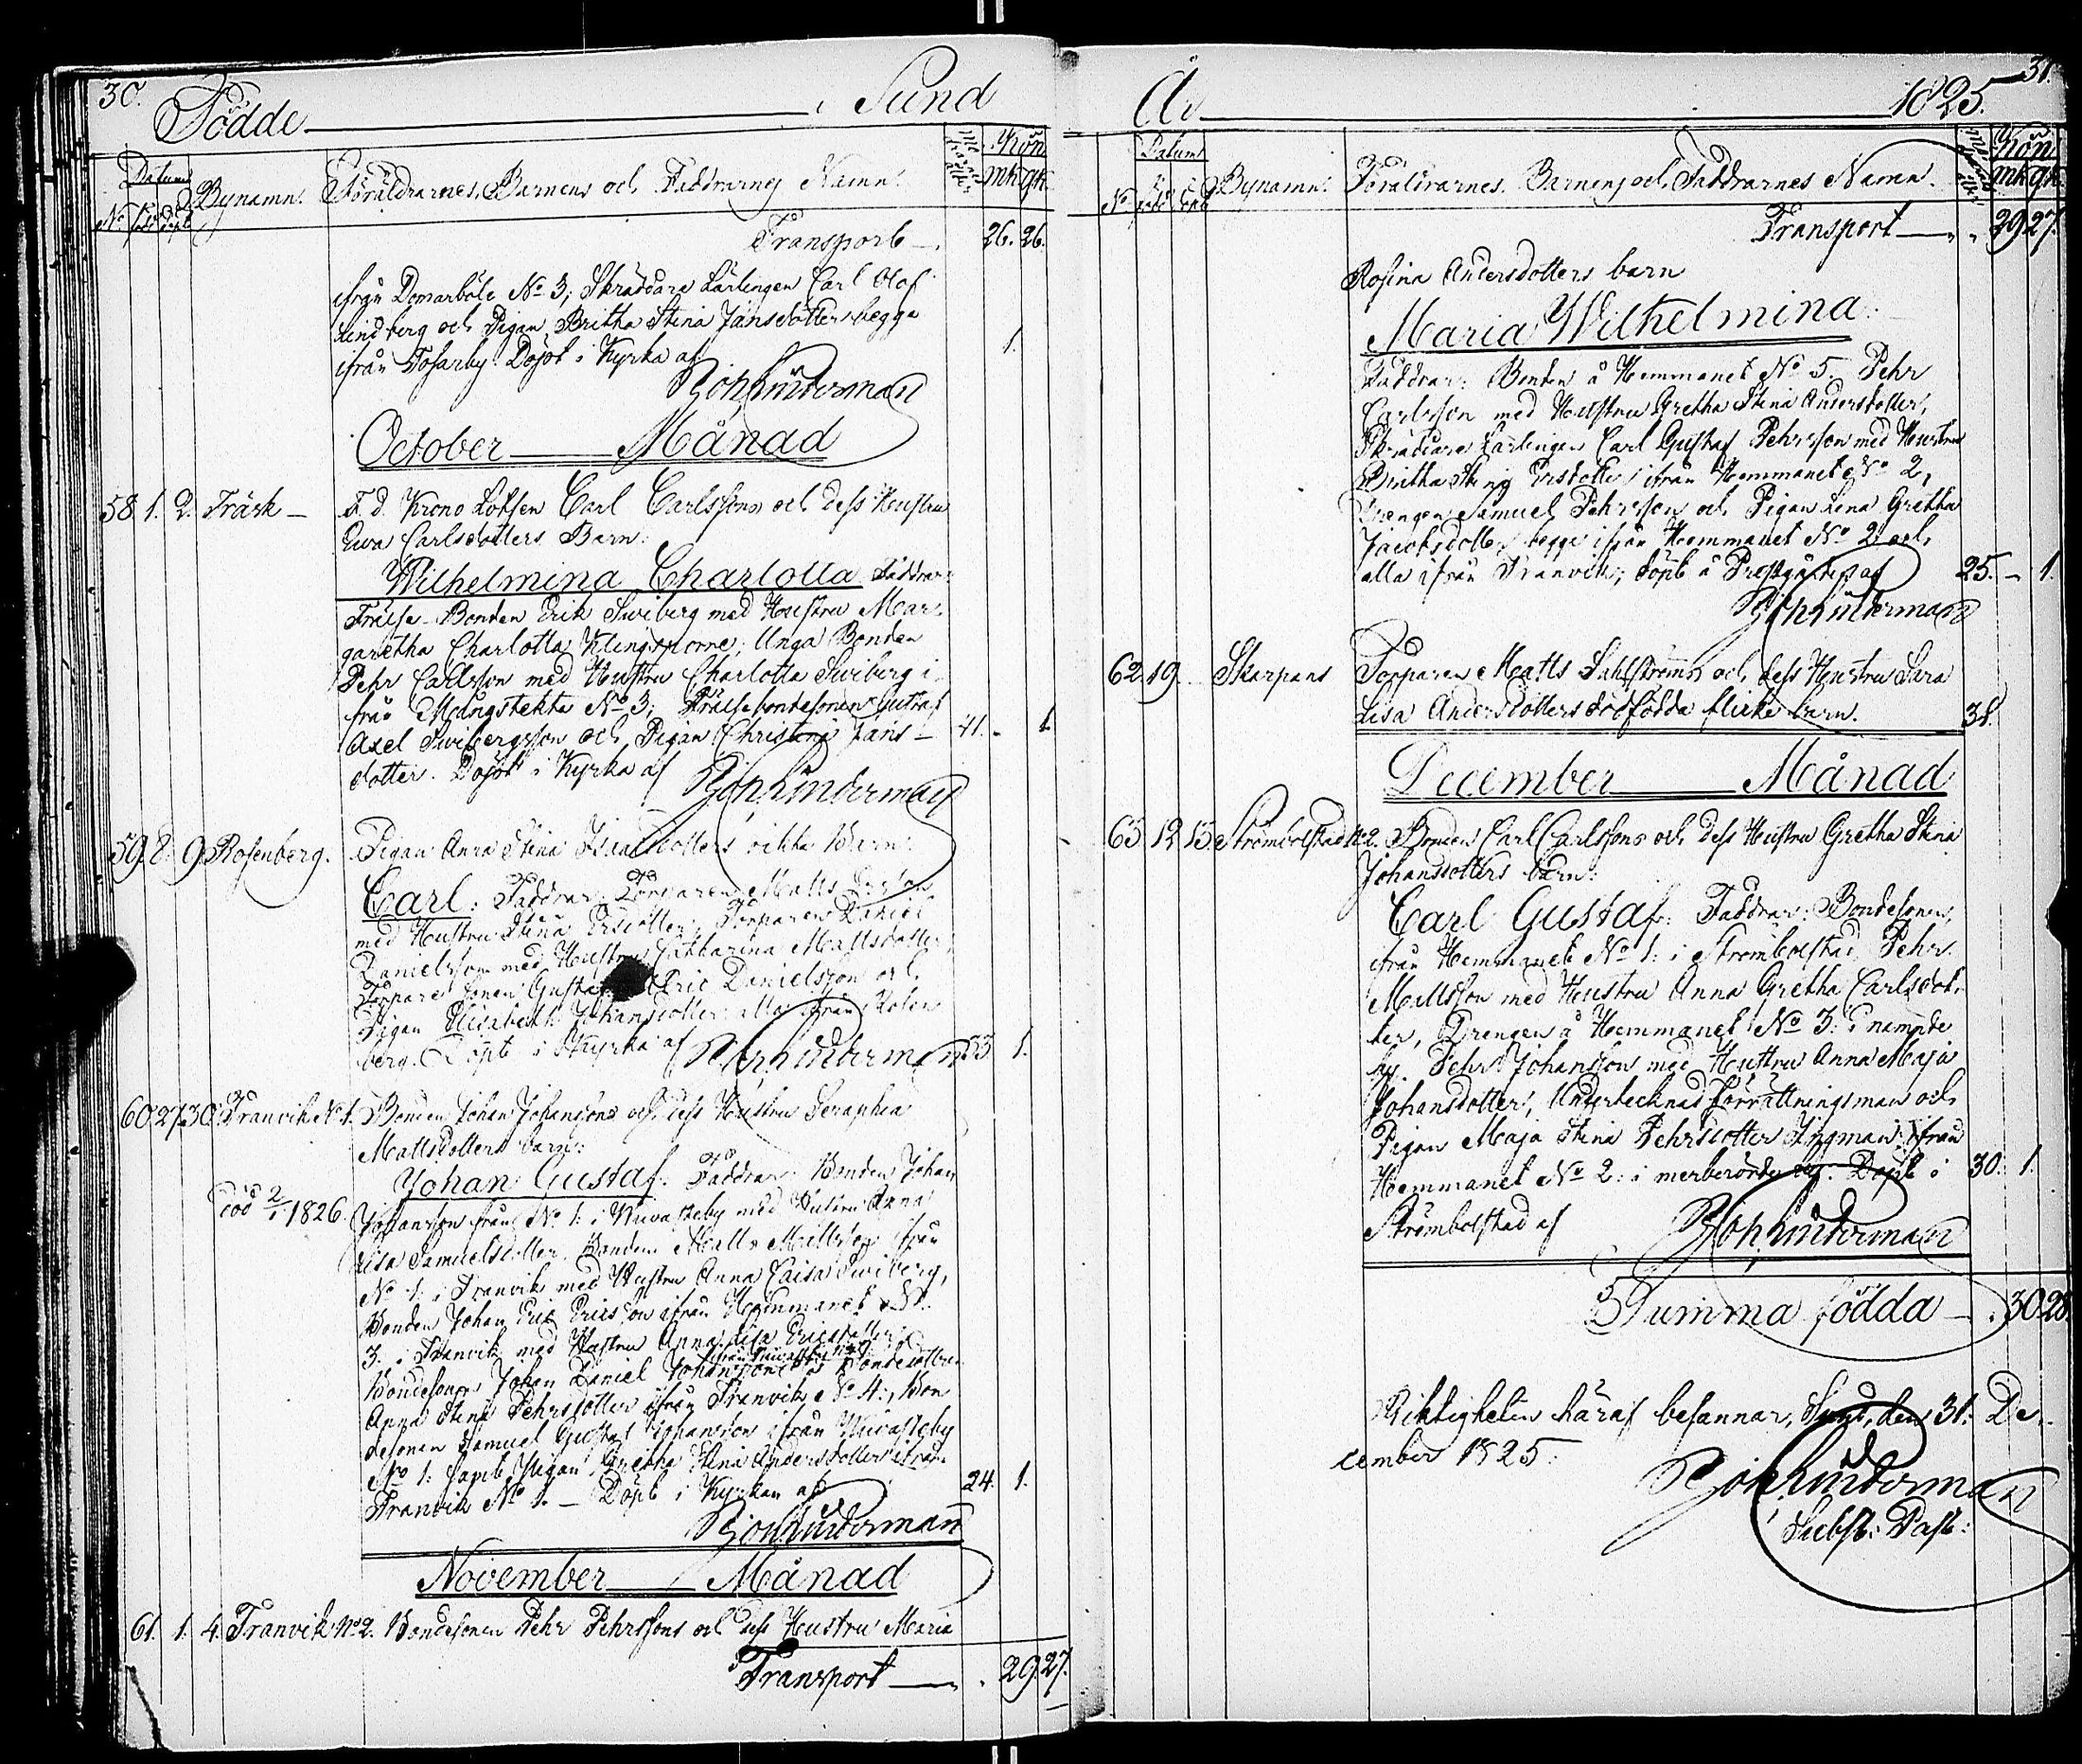 30.
Födde i Sund
Datum
No född döpt Bynamn. Föräldrarnes, Barnens och Faddrarnes Namn. Kön mk. qk.
Transport 26. 26.
ifrån Domarböle No 3; Skräddare Lärlingen Carl Olof
Lindberg och Pigan Britha Stina Jansdotter begge
ifrån Tosarby. Döpt i Kyrka af 1.
Joh. Linderman
October Månad
58. 1. 2. Träsk F. d. Krono Lotsen Carl Carlssons och dess Hustru
Ewa Carlsdotters Barn:
Wilhelmina Charlotta Faddrar:
Frälse Bonden Erik Swiberg med Hustru Mar-
garetha Charlotta Klingsporre; Unga Bonden
Pehr Carlsson med Hustru Charlotta Swiberg i-
från Mångstekta No 3; Frälsebondesonen Gustaf
Axel Swibergsson och Pigan Christina Jans- 41. 1.
dotter. Döpt i Kyrka af Joh. Linderman
59. 8. 9. Rosenberg. Pigan Anna Stina dotters oäkta Barn:
Carl: Faddrar: Torparen Matts
med Hustru Stina Ersdotter; Torparen Daniel
Danielsson med Hustru Catharina Mattsdotter;
Torpare sonen Gustaf Eric Danielsson och
Pigan Elisabeth Johansdotter alla ifrån Rosen-
berg. Döpt i Kyrka af Joh. Linderman 33. 1.
60. 27. 30. Tranvik No 1. Bonden Johan Johanssons och dess Hustru Seraphia
Mattsdotters barn:
Johan Gustaf. Faddrar: Bonden Johan
död 2/1 1826. Johansson från No 1: i Hulta med Hustru Anna
Lisa Samuelsdotter. Bonden Matts Mattsson ifrån
No 1: i Tranvik med Hustru Anna Caisa Swiberg,
Bonden Johan Eric Ericsson ifrån Hemmanet No
3. i Tranvik med Hustru Anna Lisa Ericsdotter;
Bondesonen Johan Daniel Johansson Bondedottren
Anna Stina Pehrsdotter ifrån Tranvik No 4:, Bon-
desonen Samuel Gustaf Johansson ifrån
No 1: samt Pigan Gretha Stina Andersdotter ifrån
Tranvik No 1. — Döpt i Kyrkan af 24. 1.
Joh. Linderman
November Månad
61. 1. 4. Tranvik No 2. Bondesonen Pehr Pehrssons och dess Hustru Maria
Transport 29. 27.
31.
År 1825.
Datum
No född döpt Bynamn. Föräldrarnes, Barnens och Faddrarnes Namn. Kön mk. qk.
Transport 29. 27.
Rosina Andersdotters barn
Maria Wilhelmina:
Faddrar: Bonden å Hemmanet No 5. Pehr
Carlsson med Hustru Gretha Stina Andersdotter,
Skräddare Lärlingen Carl Gustaf Pehrsson med Hustru
Britha Stina Ersdotter ifrån Hemmanet No 2,
Drengen Samuel Pehrsson och Pigan Lena Gretha
Jacobsdotter begge ifrån Hemmanet No 2 och
alla ifrån Tranvik; döpt å Prestgården af 25. — 1.
Joh. Linderman
62. 19. Skarpans Torparen Matts Dahlströms och dess Hustru Sara
Lisa Andersdotters dödfödda flicke barn. 38.
December Månad
63. 12. 13. Strömbolstad No 2. Bonden Carl Carlssons och dess Hustru Gretha Stina
Johansdotters barn:
Carl Gustaf: Faddrar: Bondesonen,
ifrån Hemmanet No 1: i Strömbolstad, Pehr
Mattsson med Hustru Anna Gretha Carlsdot-
ter, Drengen å Hemmanet No 3: i nämnde
by, Pehr Johansson med Hustru Anna Maja
Johansdotter, Undertecknad förrättningsman och
Pigan Maja Stina Pehrsdotter Ingman ifrån
Hemmanet No 2: i merberörde by. Döpt i 30. 1.
Strömbolstad af Joh. Linderman
Summa födda 30. 28.
Riktigheten häraf besannar, Sund, den 31. De-
cember 1825.
Joh. Linderman
Subst: Past: